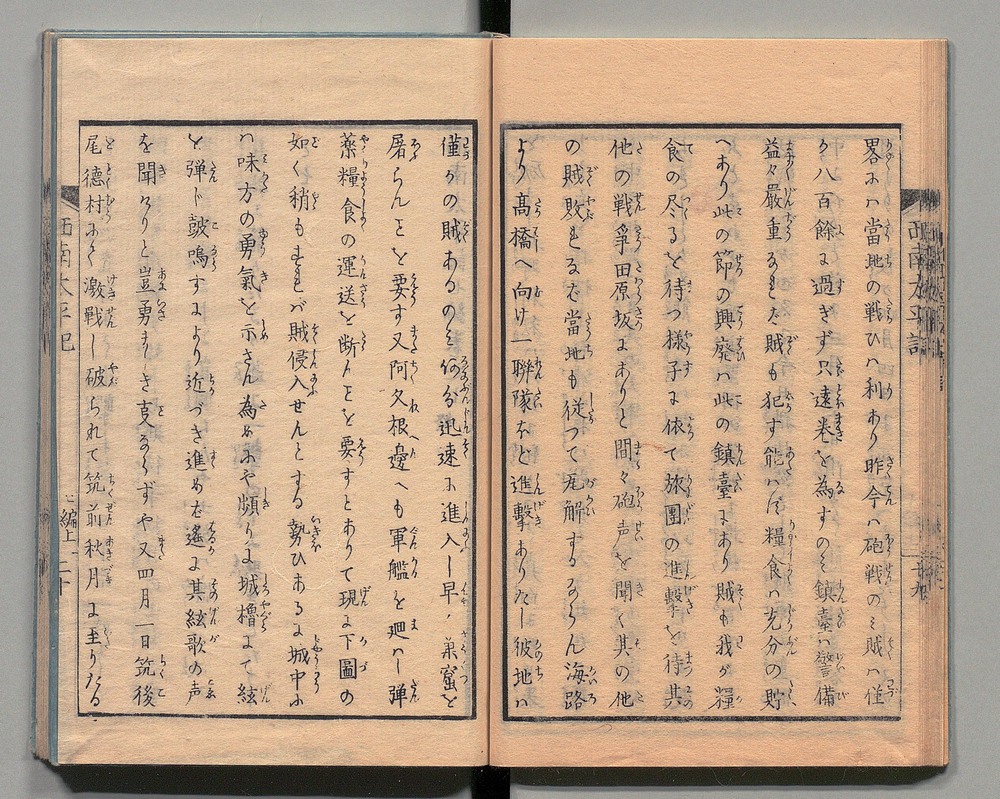 畧ふハ當地の戦ひハ利あり昨今ハ砲戦のミ賊ハ僅
か八百餘に過ぎず只遠巻を為すのミ鎮臺ハ警備
益々嚴重なれバ賊も犯す能ハず糧食ハ充分の貯
へあり此の節の興廃ハ此の鎮臺にあり賊も我が糧
食の尽るを待つ様子に依て旅團の進撃を待其
他の戦争田原坂にありと間々砲声を聞く其の他
の賊敗るれバ當地も従つて瓦解するならん海路
より髙橋へ向け一聯隊ほど進撃ありたし彼地ハ
僅かの賊あるのミ何分迅速に進入し早く巣窟を
屠らんことを要す又阿久根邊へも軍艦を廻ハし弾
薬糧食の運送を断ことを要すとありて現に下圖の
如く稍もすれバ賊侵入せんとする勢ひあるに城中ふ
ハ味方の勇氣を示さん為めにや頻りに城櫓にて絃
を弾じ皷鳴すにより近づき進めバ遙に其絃歌の声
を聞けりと豈勇ましき事ならずや又四月一日筑後
尾德村に於く激戦し破られて筑前秋月に至りたる
西南太平記
七編上
二十
西南太平記
十九